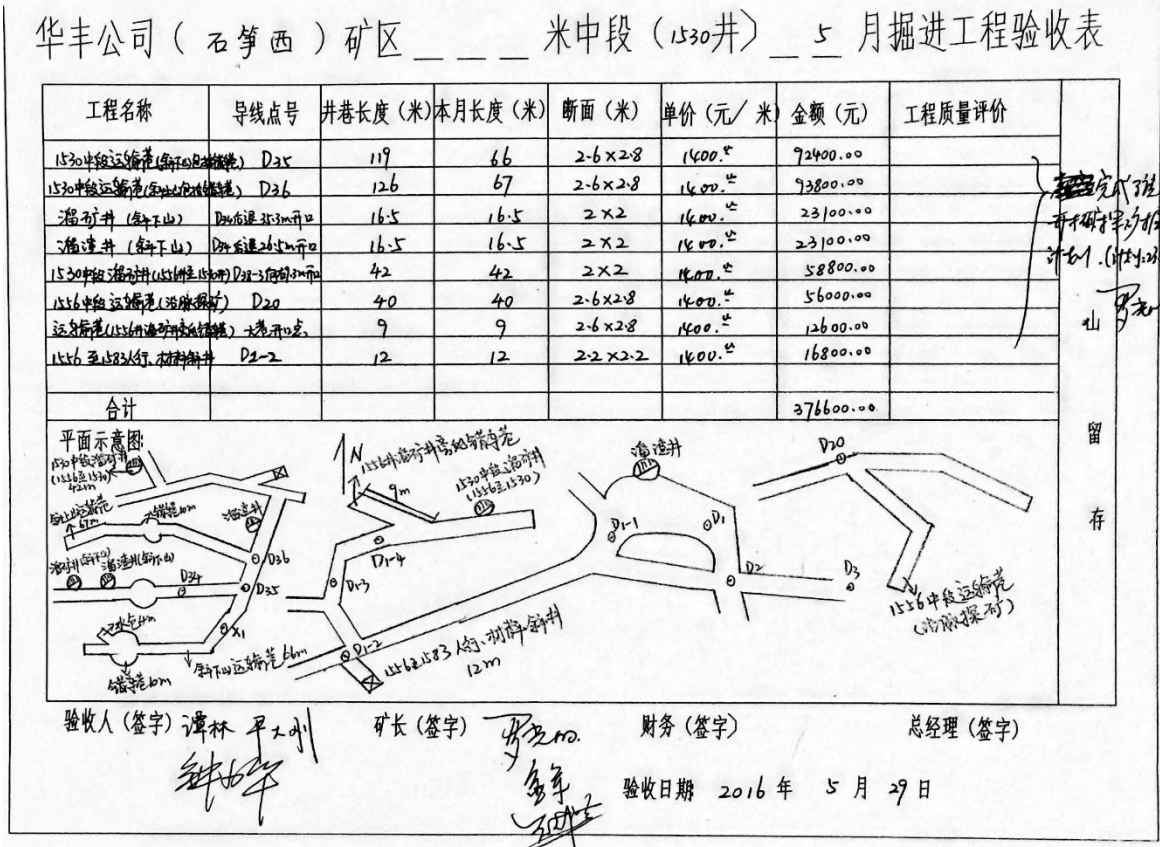 华丰公司（石笋西）矿区 _ _ _ 米中段（1530井）_ 5 月掘进工程验收表
工程名称 导线点号 井巷长度（米） 本月长度（米） 断面（米） 单价（元/米） 金额（元） 工程质量评价
1530中段运输巷 D35 119 66 2.6×2.8 1400. 92400.00
1530中段运输巷 D36 126 67 2.6×2.8 1400. 93800.00
溜矿井（斜下山） D34后退35.3m开口 16.5 16.5 2×2 1400. 23100.00
溜渣井（斜下山） D34后退26.5m开口 16.5 16.5 2×2 1400. 23100.00
1530中段溜矿井(1556井至1530井) 42 42 2×2 1400. 58800.00
1556中段运输巷（沿脉探矿） D20 40 40 2.6×2.8 1400. 56000.00
运输巷 大巷开口点 9 9 2.6×2.8 1400. 12600.00
1556至1583人行、材料斜井 D1-2 12 12 2.2×2.2 1400. 16800.00
合计 376600.00
完成了
计划
山
留
存
平面示意图:
1530中段溜矿井
(1556至1530)
42m
67m
溜渣井
D36
溜渣井(斜下山)
D34
D35
X1
斜下山运输巷66m
错车巷10m
N
9m
1530中段溜矿井
(1556至1530)
D1-4
D1-3
D1-2
1556至1583人行、材料斜井
12m
溜渣井
D1-1
D1
D2
D3
D20
1556中段运输巷
（沿脉探矿）
验收人（签字） 谭林 矿长（签字） 财务（签字） 总经理（签字）
验收日期 2016 年 5 月 29 日